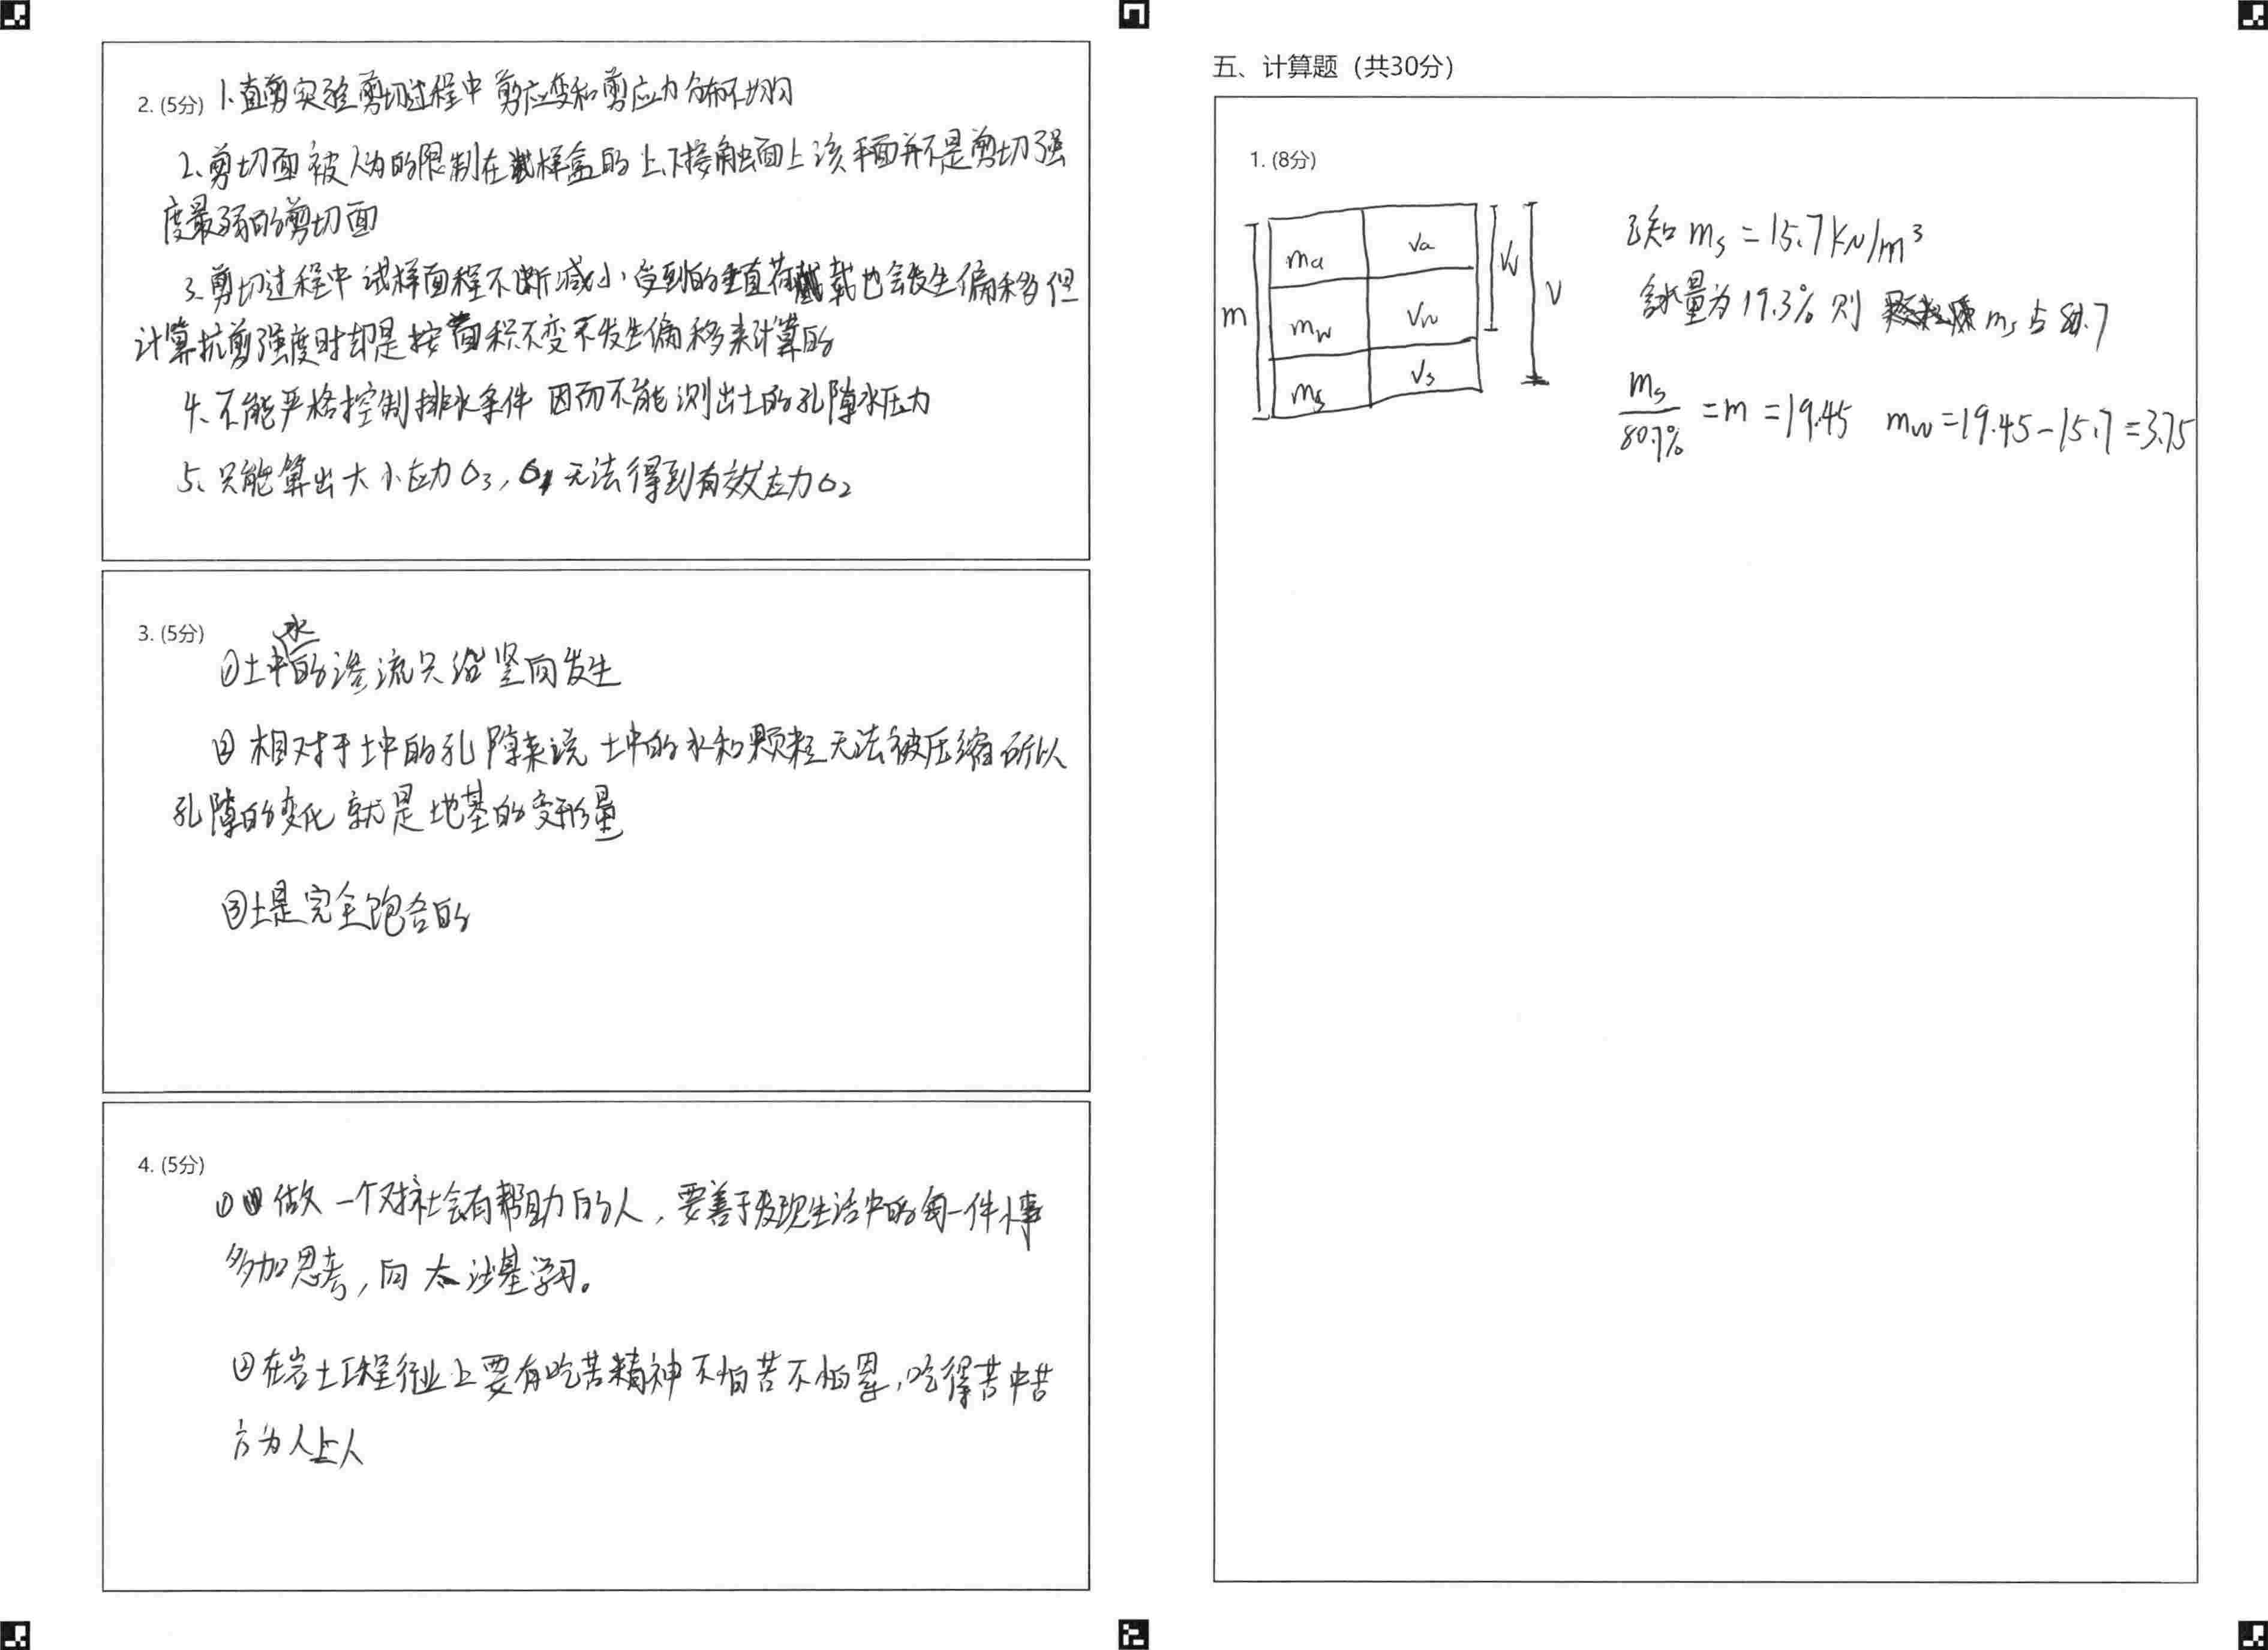 2. (5分) 1、直剪实验剪切过程中剪应变和剪应力分布不均匀
2、剪切面被人为的限制在试样盒的上下接触面上该平面并不是剪切强
度最弱的剪切面
3、剪切过程中试样面程不断减小受到的垂直荷载也会发生偏移但
计算抗剪强度时却是按面积不变不发生偏移来计算的
4、不能严格控制排水条件 因而不能测出土的孔隙水压力
5、只能算出大小应力σ3, σ1 无法得到有效应力σ2
3. (5分)
①土中水的渗流只沿竖向发生
② 相对于土中的孔隙来说 土中的水和颗粒无法被压缩所以
孔隙的变化就是地基的变形量
③土是完全饱合的
4. (5分)
① 做一个对社会有帮助的人，要善于发现生活中的每一件小事
多加思考，向太沙基学习。
②在岩土工程行业上要有吃苦精神不怕苦不怕累，吃得苦中苦
方为人上人
五、计算题（共30分）
1. (8分)
ma Va
m mw Vw Vv V
ms Vs
已知 ms = 15.7 kN/m³
含水量为19.3% 则 ms占80.7
ms/80.7% = m = 19.45 mw = 19.45 - 15.7 = 3.75